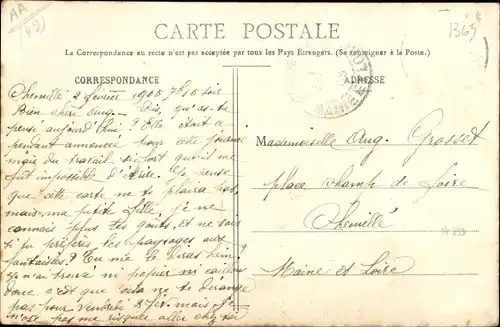 AA
CARTE POSTALE
La Correspondance au recto n'est pas acceptée par tous les Pays Étrangers. (Se renseigner à la Poste.)
CORRESPONDANCE
ADRESSE
Chemillé 2 février 1905 7h 15 soir
Bien chère Aug. Dis, qu'as-tu
pensé aujourd'hui? Elle était
pendant annoncée pour cette journée
mais du travail si fort qu'il me
fut impossible d'écrire. Je pense
que cette carte ne te plaira pas,
mais, ma petite fille, je ne
connais plus tes goûts, et ne sais
si tu préfères les paysages aux
fantaisies? Tu me le diras hein?
n'ai trouvé ni papier ni
c'est que cela ne te dérange
pas pour vendredi mais j
n'ose pas me risquer aller chez toi
Mademoiselle Aug. Grosset
place champ de Loire
Chemillé
Maine et Loire